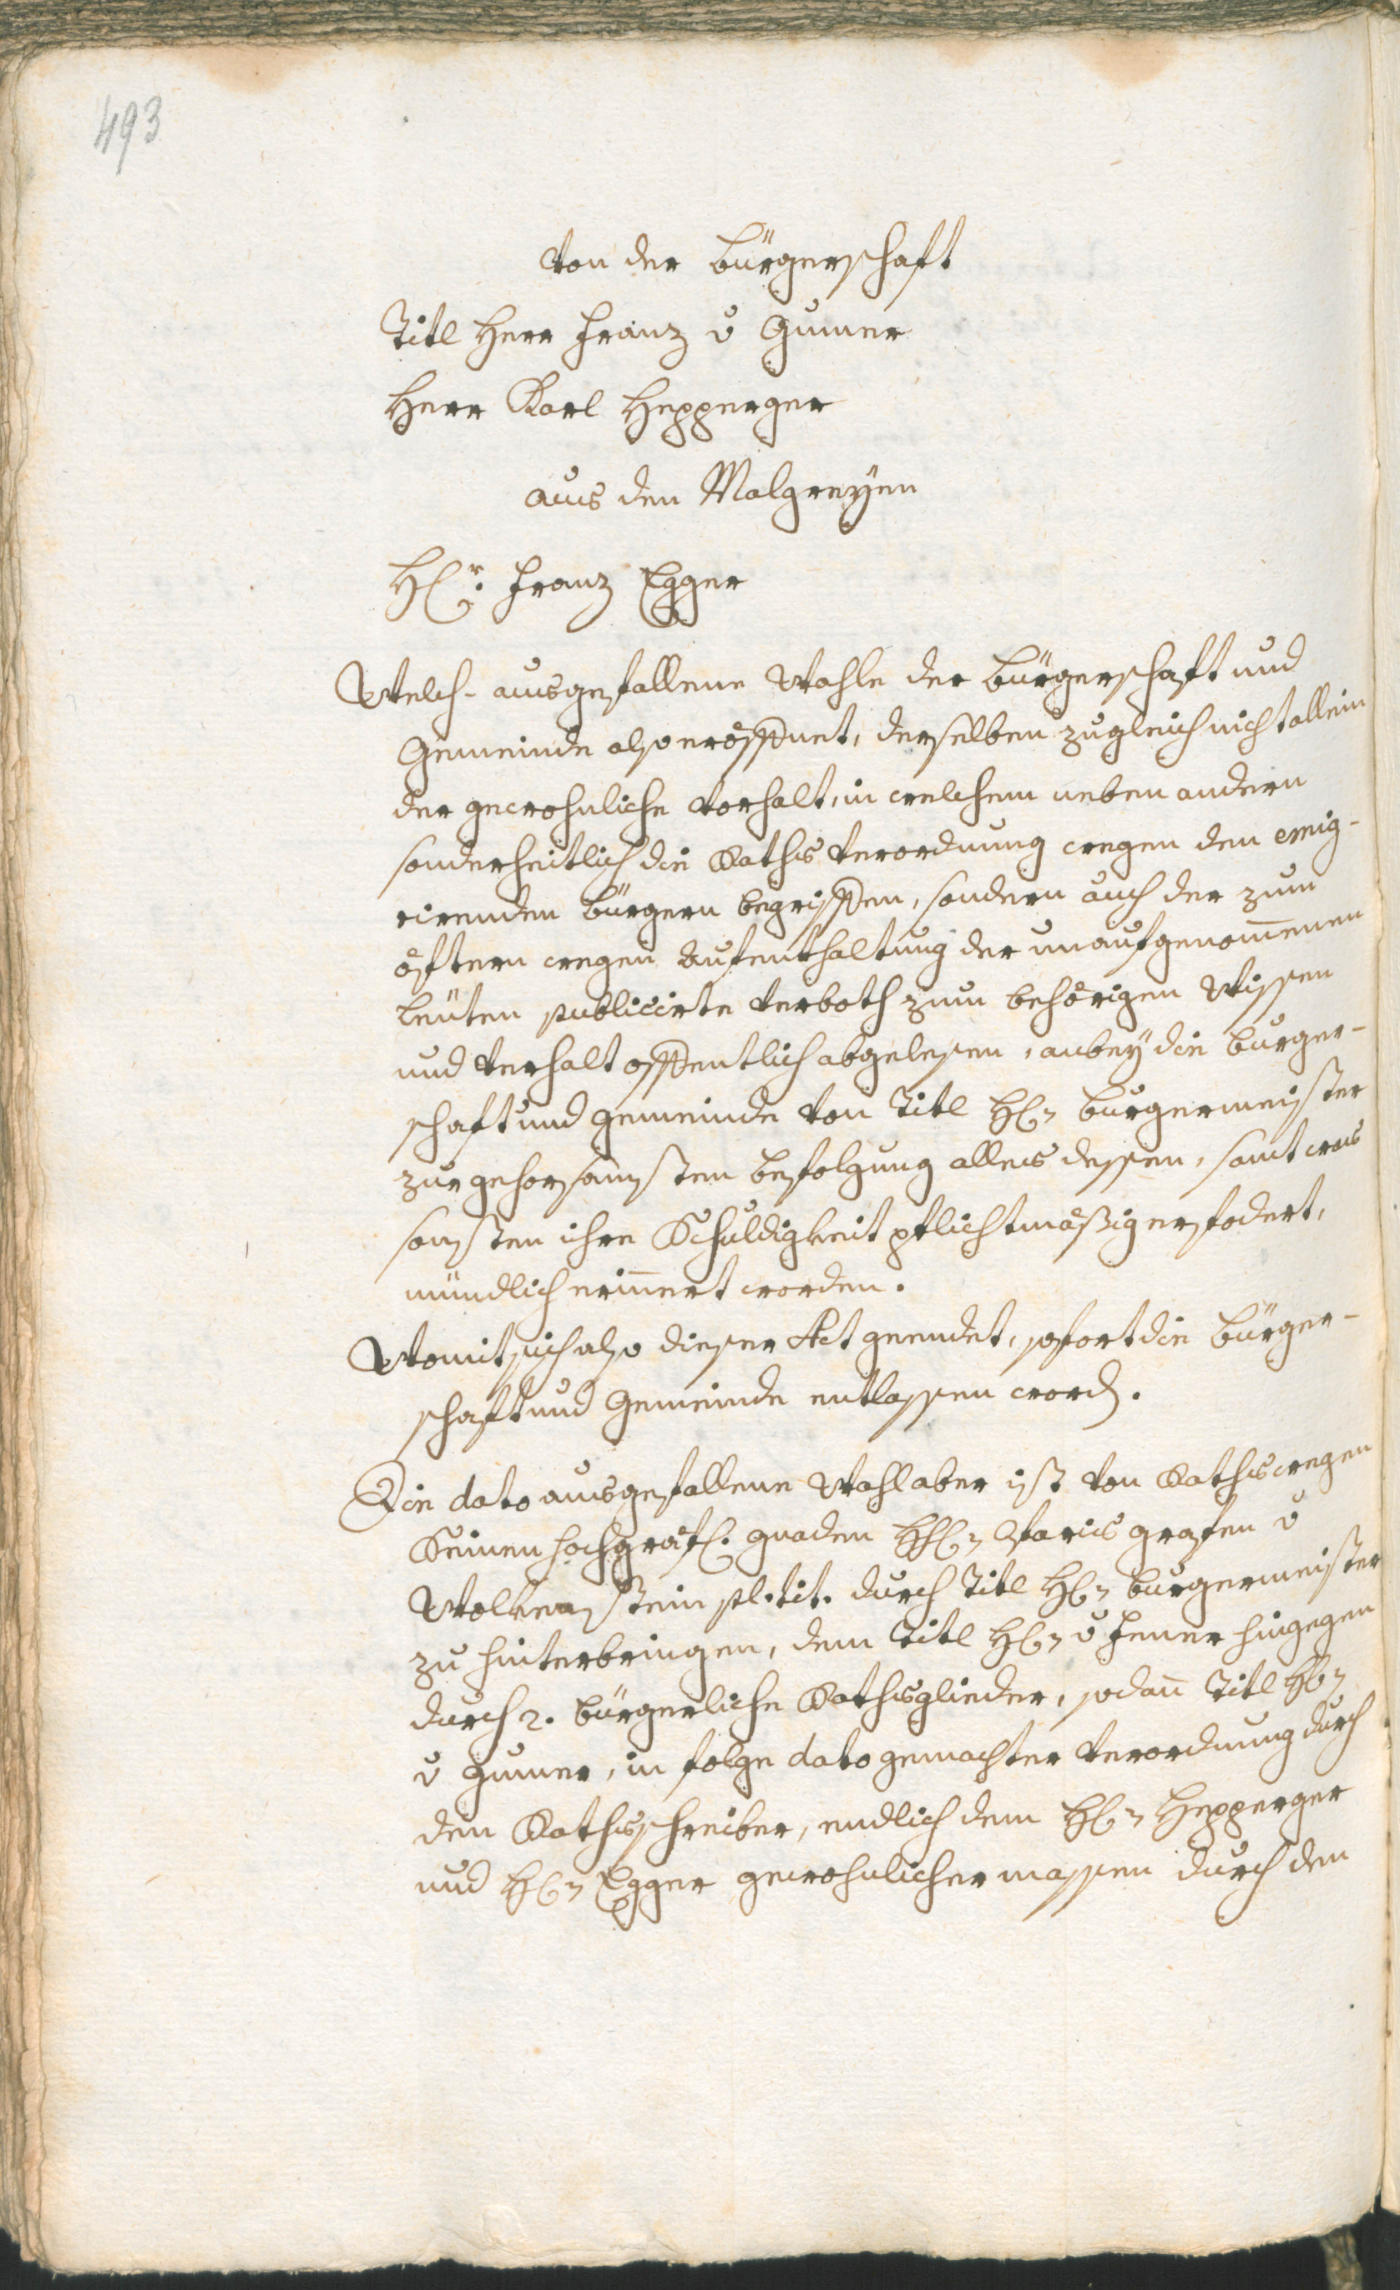 493
Von der Bürgerschaft
Titl Herr Franz v Gumer
Herr Karl Hepperger
aus den Malgreyen
H(r: Franz Egger
Welch- ausgefallene Wahle der Bürgerschaft und
Gemeinde also eröffnet, derselben zugleich nicht allein
der gewohnliche Vorhalt, in welchem neben andern
sonderheitlich die Raths Verordnung wegen den emig-
rirenden Bürgern begriffen, sondern auch der zum
öftern wegen Aufenthaltung der unaufgenom̅enen
Leüten publicirte Verboth zum behörigen Wissen
und Verhalt offentlich abgelesen, anbey die Burger-
schaft und Gemeinde von Titl H(n Burgermeister
zur gehorsamsten Befolgung alles dessen, samt was
sonsten ihre Schuldigkeit pflichtmäßig erfodert,
mündlich erin̅ert worden.
Womit sich also dieser Act geendet, sofort die Bürger-
schaft und Gemeinde entlassen word(.
Die dato ausgefallene Wahl aber ist von Raths wegen
Seiner hochgräf(. Gnaden HH(n Grafen v
Wolkenstein pl. tit. durch Titl H(n Burgermeister
zu hinterbringen, dem Titl H(n v Jener hingegen
durch 2. bürgerliche Rathsglieder, sodan̅ Titl H(n
v Gumer, in folge dato gemachter Verordnung durch
den Rathsschreiber, endlich dem H(n Hepperger
und H(n Egger gewohnlichermassen durch den